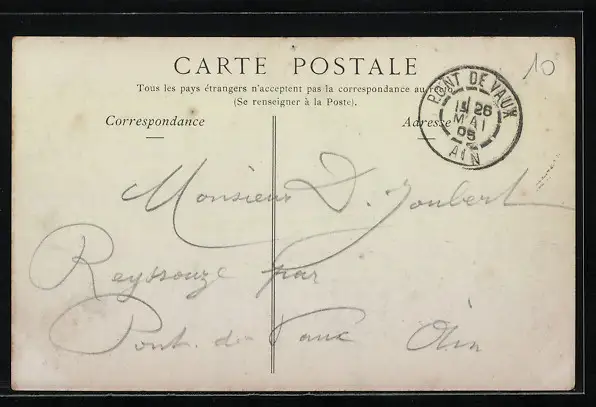 CARTE POSTALE
Tous les pays étrangers n'acceptent pas la correspondance au recto
(Se renseigner à la Poste).
Correspondance
Adresse
PONT DE VAUX
26
MAI
05
AIN
10
Monsieur D. Joubert
Reyssouze par
Pont de Vaux Ain